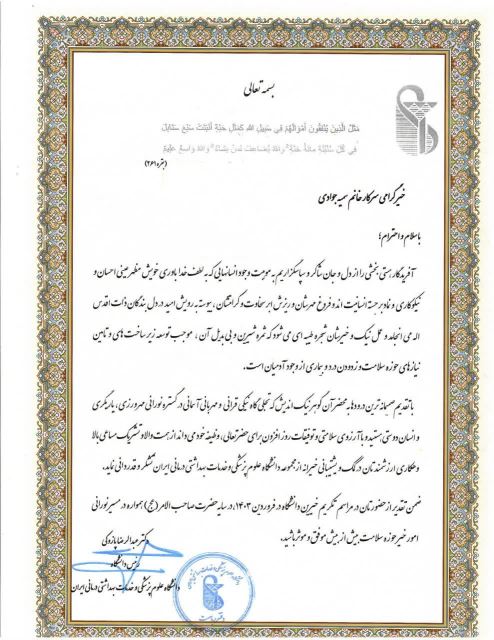 بسمه تعالی
مَثَلُ الَّذِینَ یُنْفِقُونَ أَمْوَالَهُمْ فِی سَبِیلِ اللَّهِ کَمَثَلِ حَبَّةٍ أَنْبَتَتْ سَبْعَ سَنَابِلَ
فِی کُلِّ سُنْبُلَةٍ مِائَةُ حَبَّةٍ وَاللَّهُ یُضَاعِفُ لِمَنْ یَشَاءُ وَاللَّهُ وَاسِعٌ عَلِیمٌ
(بقره ۲۶۱)
خیر گرامی سرکار خانم سمیه جوادی
با سلام و احترام؛
آفریدگار هستی بخشی را از دل و جان شاکر و سپاسگزاریم به موهبت وجود انسانهایی که به لطف خدا باوری خویش مظهر عینی احسان و
نیکوکاری و نماد برجسته انسانیت اند و فروغ مهرشان و ریزش ابر سخاوت و کرامتشان، پیوسته به رویش امید در دل بندگان ذات اقدس
اله می انجامد و عمل نیک و خیرشان شجره طیبه ای می شود که ثمره شیرین و بی بدیل آن، موجب توسعه زیرساخت های و تامین
نیازهای حوزه سلامت و زدودن درد و بیماری از وجود آدمیان است.
با تقدیم صمیمانه ترین درودها به محضر آن گوهر نیک اندیش که تجلی گاه نیکی قرآنی و مهربانی آسمانی در گستره نورانی مهرورزی، یاریگری
و انسان دوستی هستید و با آرزوی سلامتی و توفیقات روزافزون برای حضرتعالی، وظیفه خود می داند از همت والا و تشریک مساعی بالا
و همکاری ارزشمندتان در کمک و پشتیبانی خیرانه از مجموعه دانشگاه علوم پزشکی و خدمات بهداشتی درمانی ایران تشکر و قدردانی نماید.
ضمن تقدیر از حضورتان در مراسم تکریم خیرین دانشگاه در فروردین ۱۴۰۳، در سایه حضرت صاحب الامر (عج) همواره در مسیر نورانی
امور خیر حوزه سلامت بیش از پیش موفق و موثر باشید.
دکتر عبدالرضا پازوکی
رئیس دانشگاه
دانشگاه علوم پزشکی و خدمات بهداشتی درمانی ایران